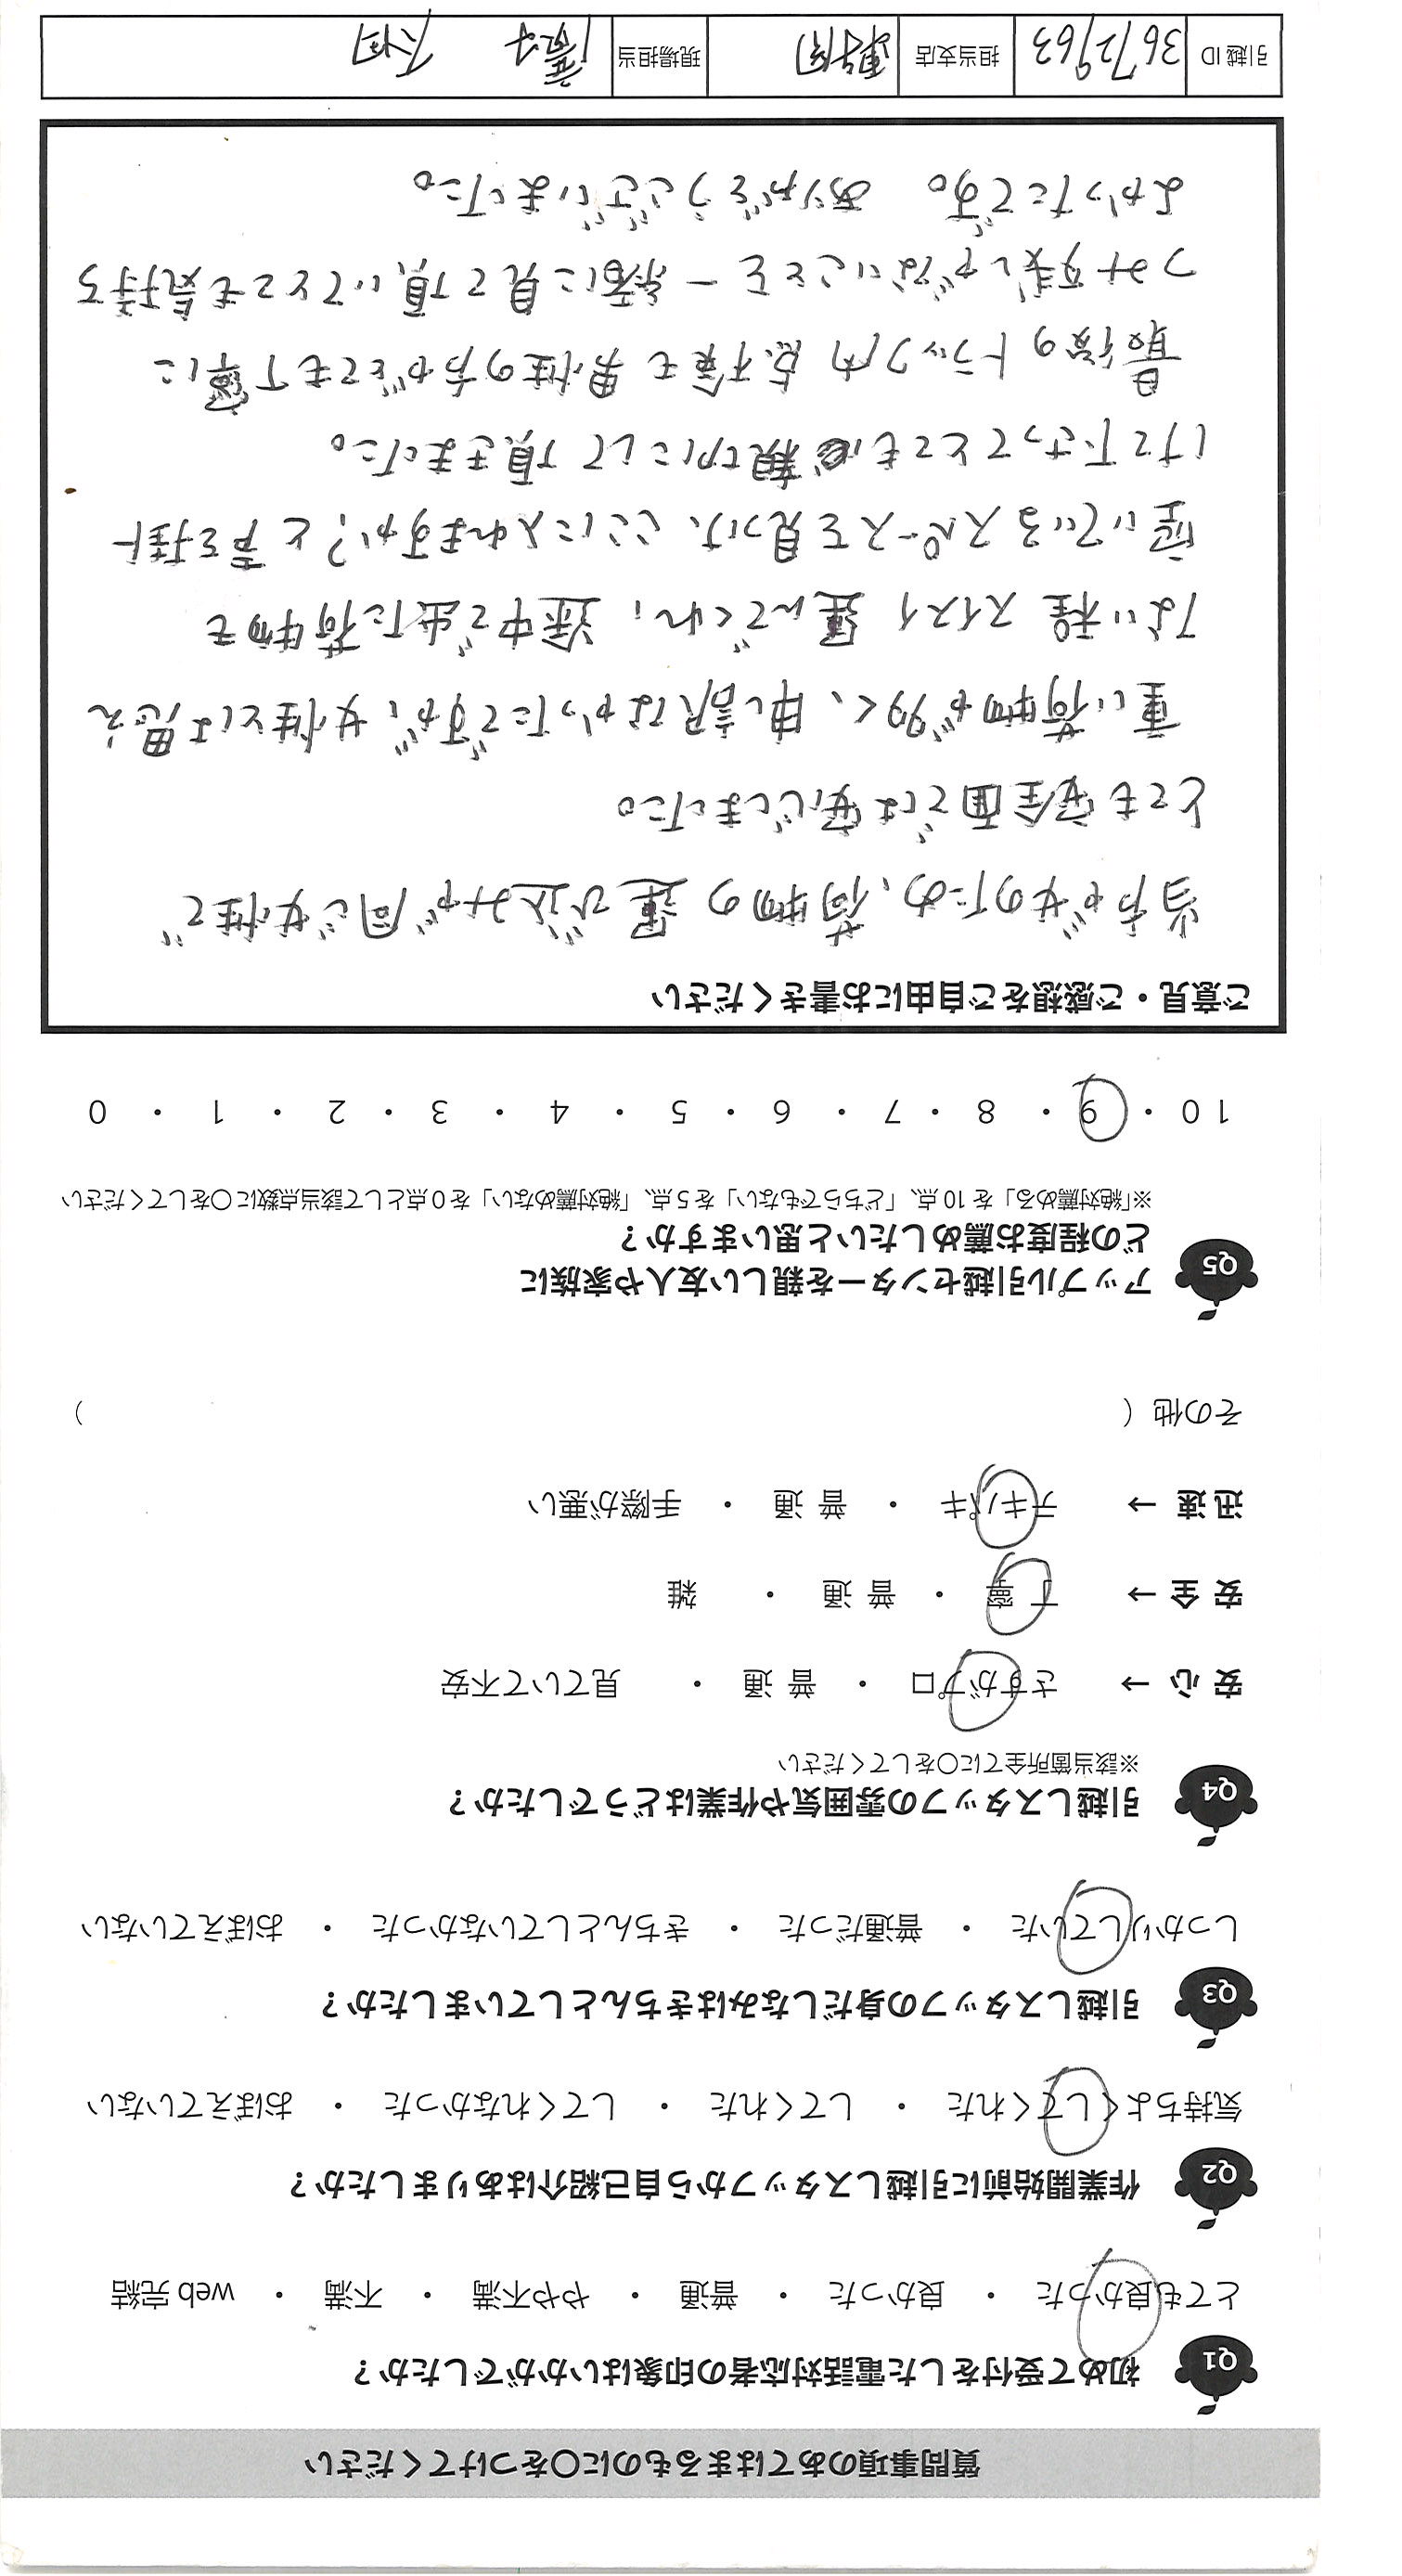 質問事項のあてはまるものに○をつけてください
Q1 初めて受付をした電話対応者の印象はいかがでしたか？
とても良かった ・ 良かった ・ 普通 ・ やや不満 ・ 不満 ・ web 完結
Q2 作業開始前に引越しスタッフから自己紹介はありましたか？
気持ちよくしてくれた ・ してくれた ・ してくれなかった ・ おぼえていない
Q3 引越しスタッフの身だしなみはきちんとしていましたか？
しっかりしていた ・ 普通だった ・ きちんとしていなかった ・ おぼえていない
Q4 引越しスタッフの雰囲気や作業はどうでしたか？
※該当箇所全てに○をしてください
安 心 → さすがプロ ・ 普 通 ・ 見ていて不安
安 全 → 丁 寧 ・ 普 通 ・ 雑
迅 速 → テキパキ ・ 普 通 ・ 手際が悪い
その他（ ）
Q5 アップル引越センターを親しい友人や家族に
どの程度お薦めしたいと思いますか？
※「絶対薦める」を 10 点、「どちらでもない」を 5 点、「絶対薦めない」を 0 点として該当点数に○をしてください
10 ・ 9 ・ 8 ・ 7 ・ 6 ・ 5 ・ 4 ・ 3 ・ 2 ・ 1 ・ 0
ご意見・ご感想をご自由にお書きください
当方が女のため、荷物の運び込みが同じ女性で
とても安全面では安心しました。
重い荷物が多く、申し訳なかったですが、女性とは思え
ない程 スイスイ 運んでくれ、途中で出た荷物も
空いているスペースを見つけ、ここに入れますか？と声を掛
けて下さってとても親切にして頂きました。
最後のトラック内 点検も 男性の方がとても丁寧に
つみ残しがないことを一緒に見て頂いてとても気持ち
よかったです。 ありがとうございました。
引越 ID 3672963 担当支店 現場担当